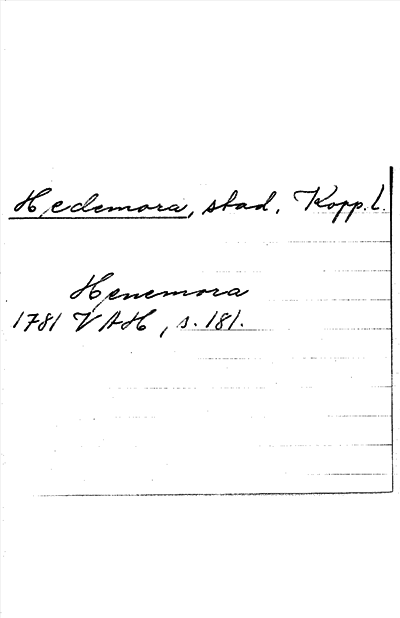 Hedemora, stad, Kopp. l.
Henemora
1781 VAH, s. 181.